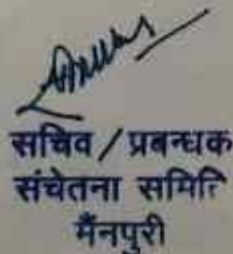 सचिव / प्रबन्धक
संचेतना समिति
मैंनपुरी